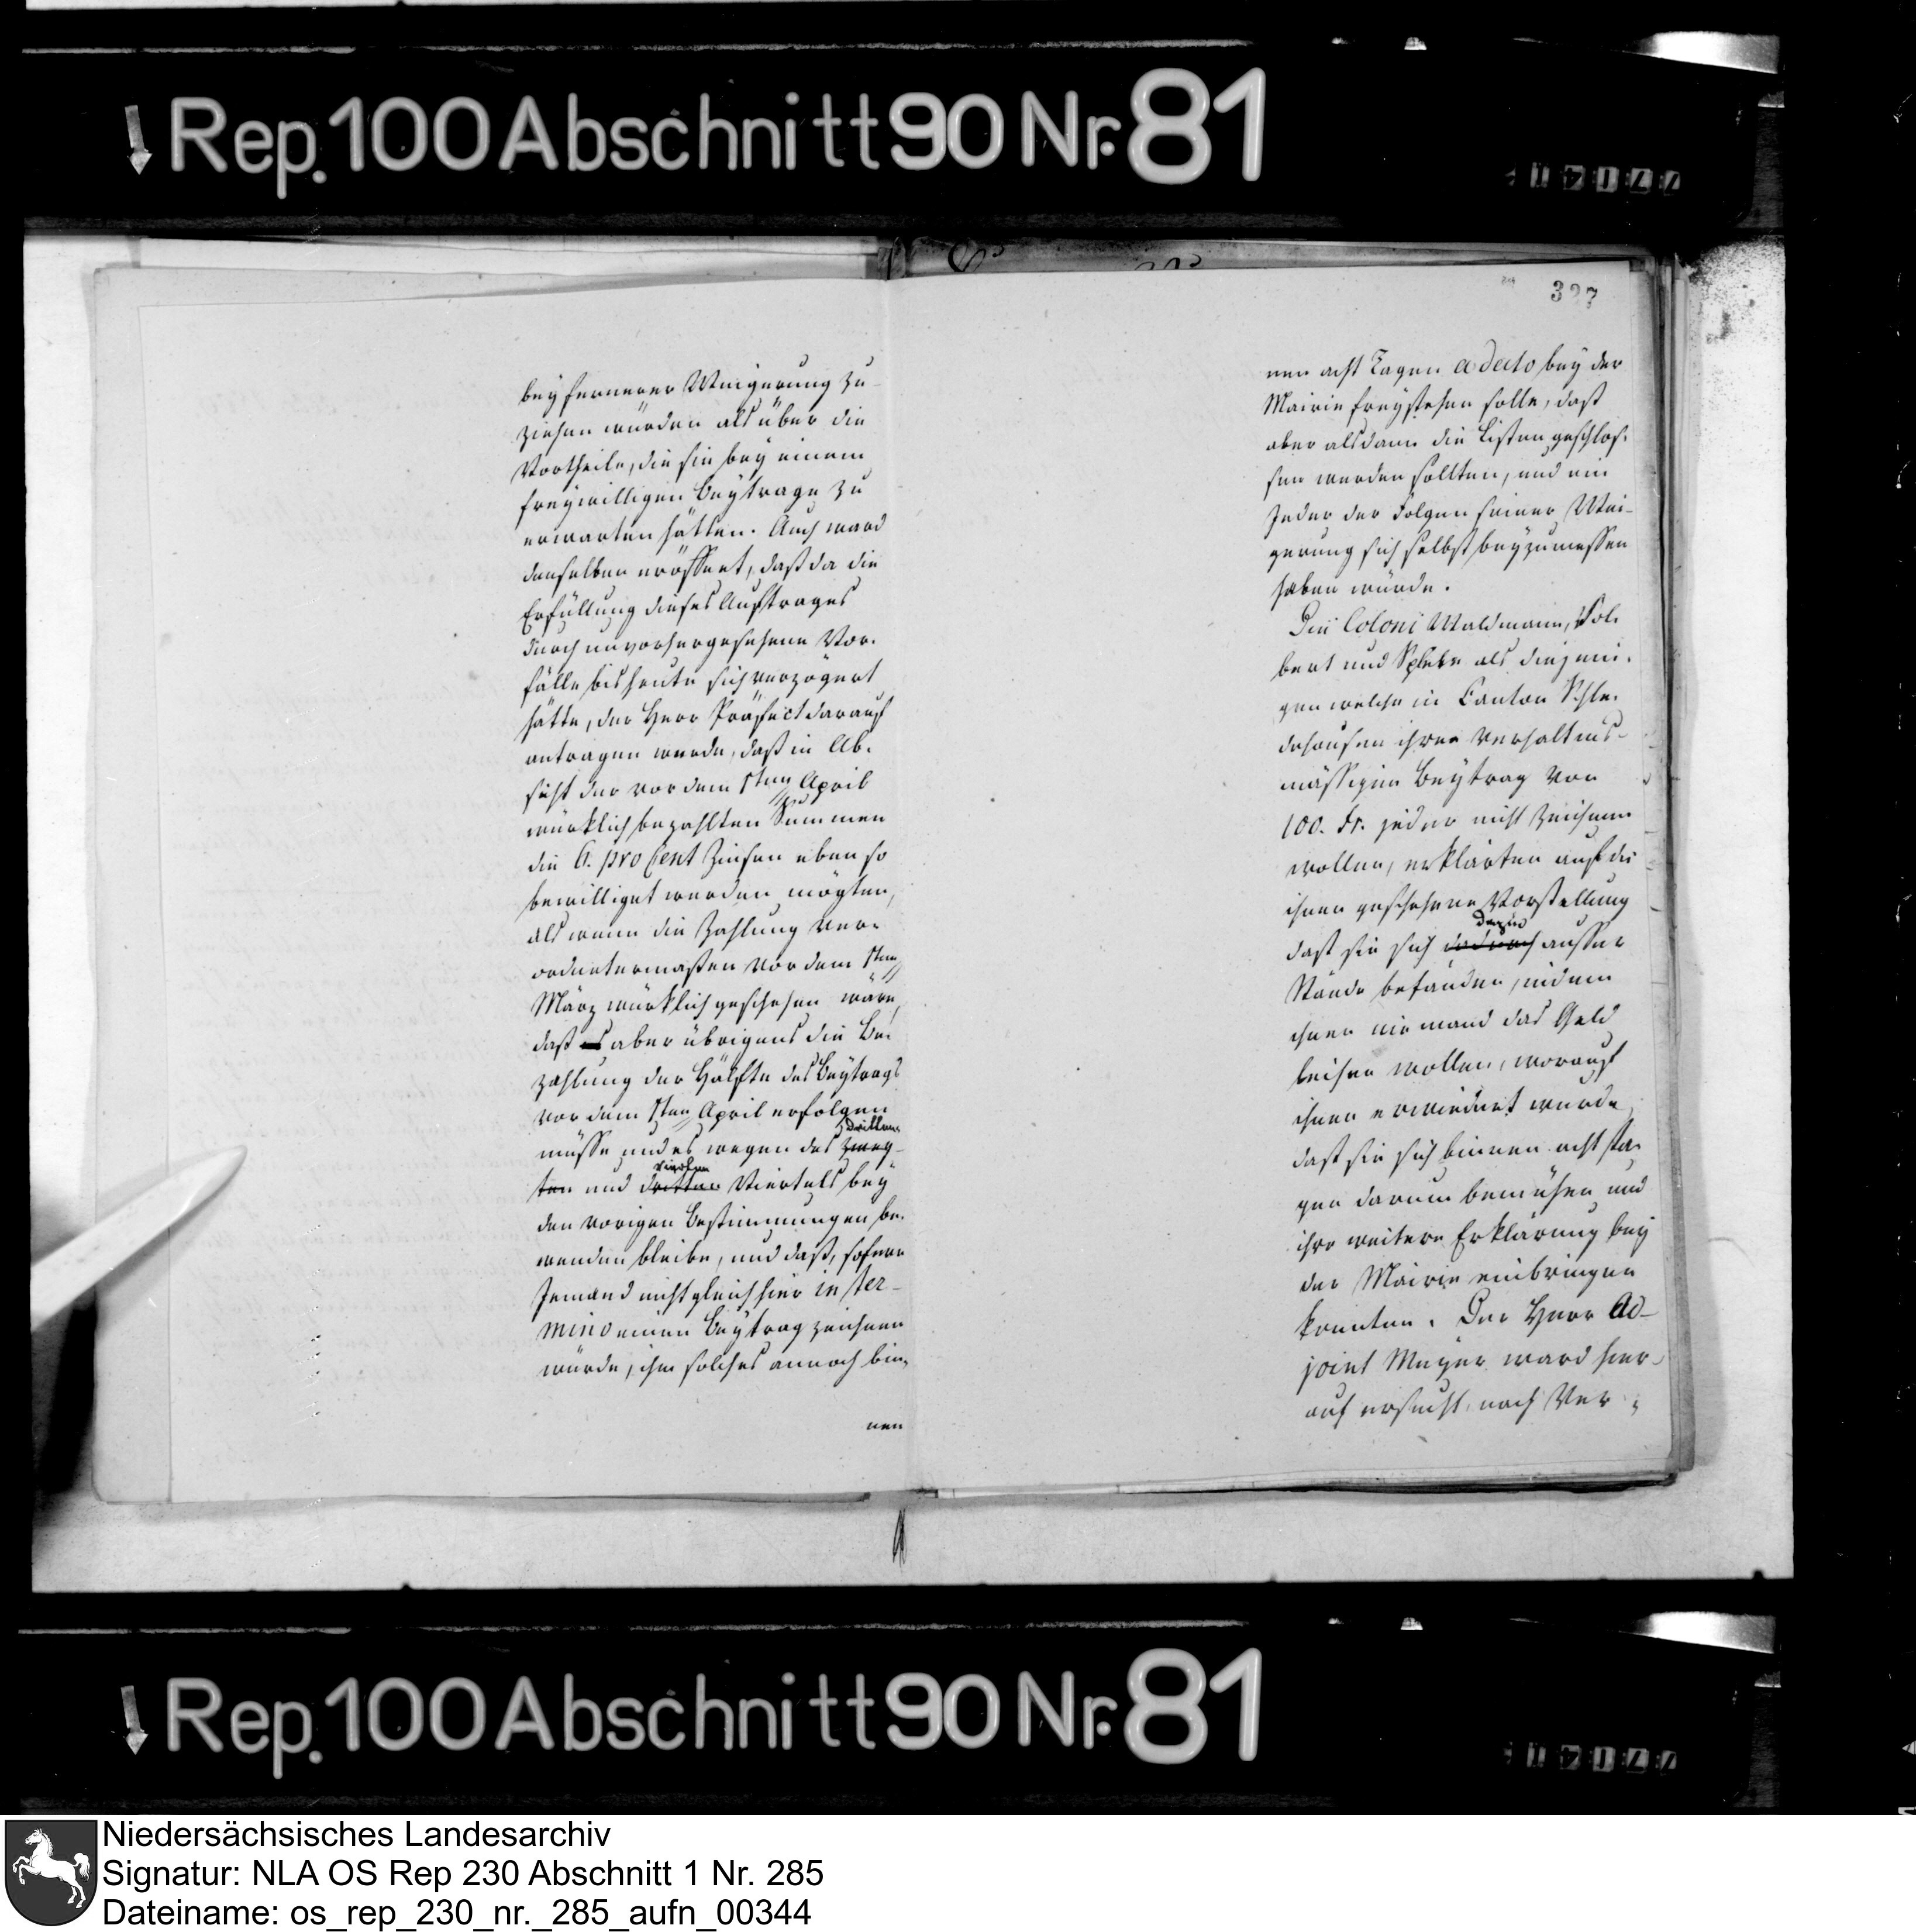 Rep. 100 Abschnitt 90 Nr. 81
327
bey fernerer Weigerung zu-
ziehen würden als über die
Vortheile, die sie bey einem
freywilligen Beytrage zu
erwarten hätten. Auch ward
denselben eröffnet, daß da die
Erfüllung dieses Auftrages
durch unvorhergesehene Vor-
fälle bis heute sich verzögert
hätte, der Herr Präfect darauf
antragen werde, daß in Ab-
sicht der vor dem 1ten April
würklich bezahlten Summen
die 6. pro Cent Zinsen eben so
bewilliget werden mögten,
als wenn die Zahlung ver-
ordnetermaßen vor dem 1ten
März würklich geschehen wäre,
daß aber übrigens die Be-
zahlung der Hälfte des Beytrags
vor dem 1ten April erfolgen
dritten
müsse und es wegen des zwey-
vierten
ten und dritten Viertels bey
den vorigen Bestimmungen be-
wenden bleibe, und daß, sofern
Jemand nicht gleich hier in ter-
mino einen Beytrag zeichnen
würde, ihm solches annoch bin-
nen
nen acht Tagen a dato bey der
Mairie freystehen solle, daß
aber alsdann die Listen geschlos-
sen werden sollten, und ein
Jeder der Folgen seiner Wei-
gerung sich selbst beyzumessen
haben würde.
Die Coloni Waldmann, Vol-
bert und als diejeni-
gen welche in Canton Schle-
dehausen ihren verhaltnis-
mässigen Beytrag von
100. Fr. jeder nicht zeichnen
wollen, erklärten auf die
ihnen geschehene Vorstellung
dazu
daß sie sich dadurch ausser
Stande befänden, indem
ihnen niemand das Geld
leihen wollen, worauf
ihnen erwiedert wurde
daß sie sich binnen acht Ta-
gen darum bemühen und
ihre weitere Erklärung bey
der Mairie einbringen
könnten. Der Herr Ad-
joint Meyer ward hier-
auf ersucht, nach Ver-
Rep. 100 Abschnitt 90 Nr. 81
Niedersächsisches Landesarchiv
Signatur: NLA OS Rep 230 Abschnitt 1 Nr. 285
Dateiname: os_rep_230_nr._285_aufn_00344